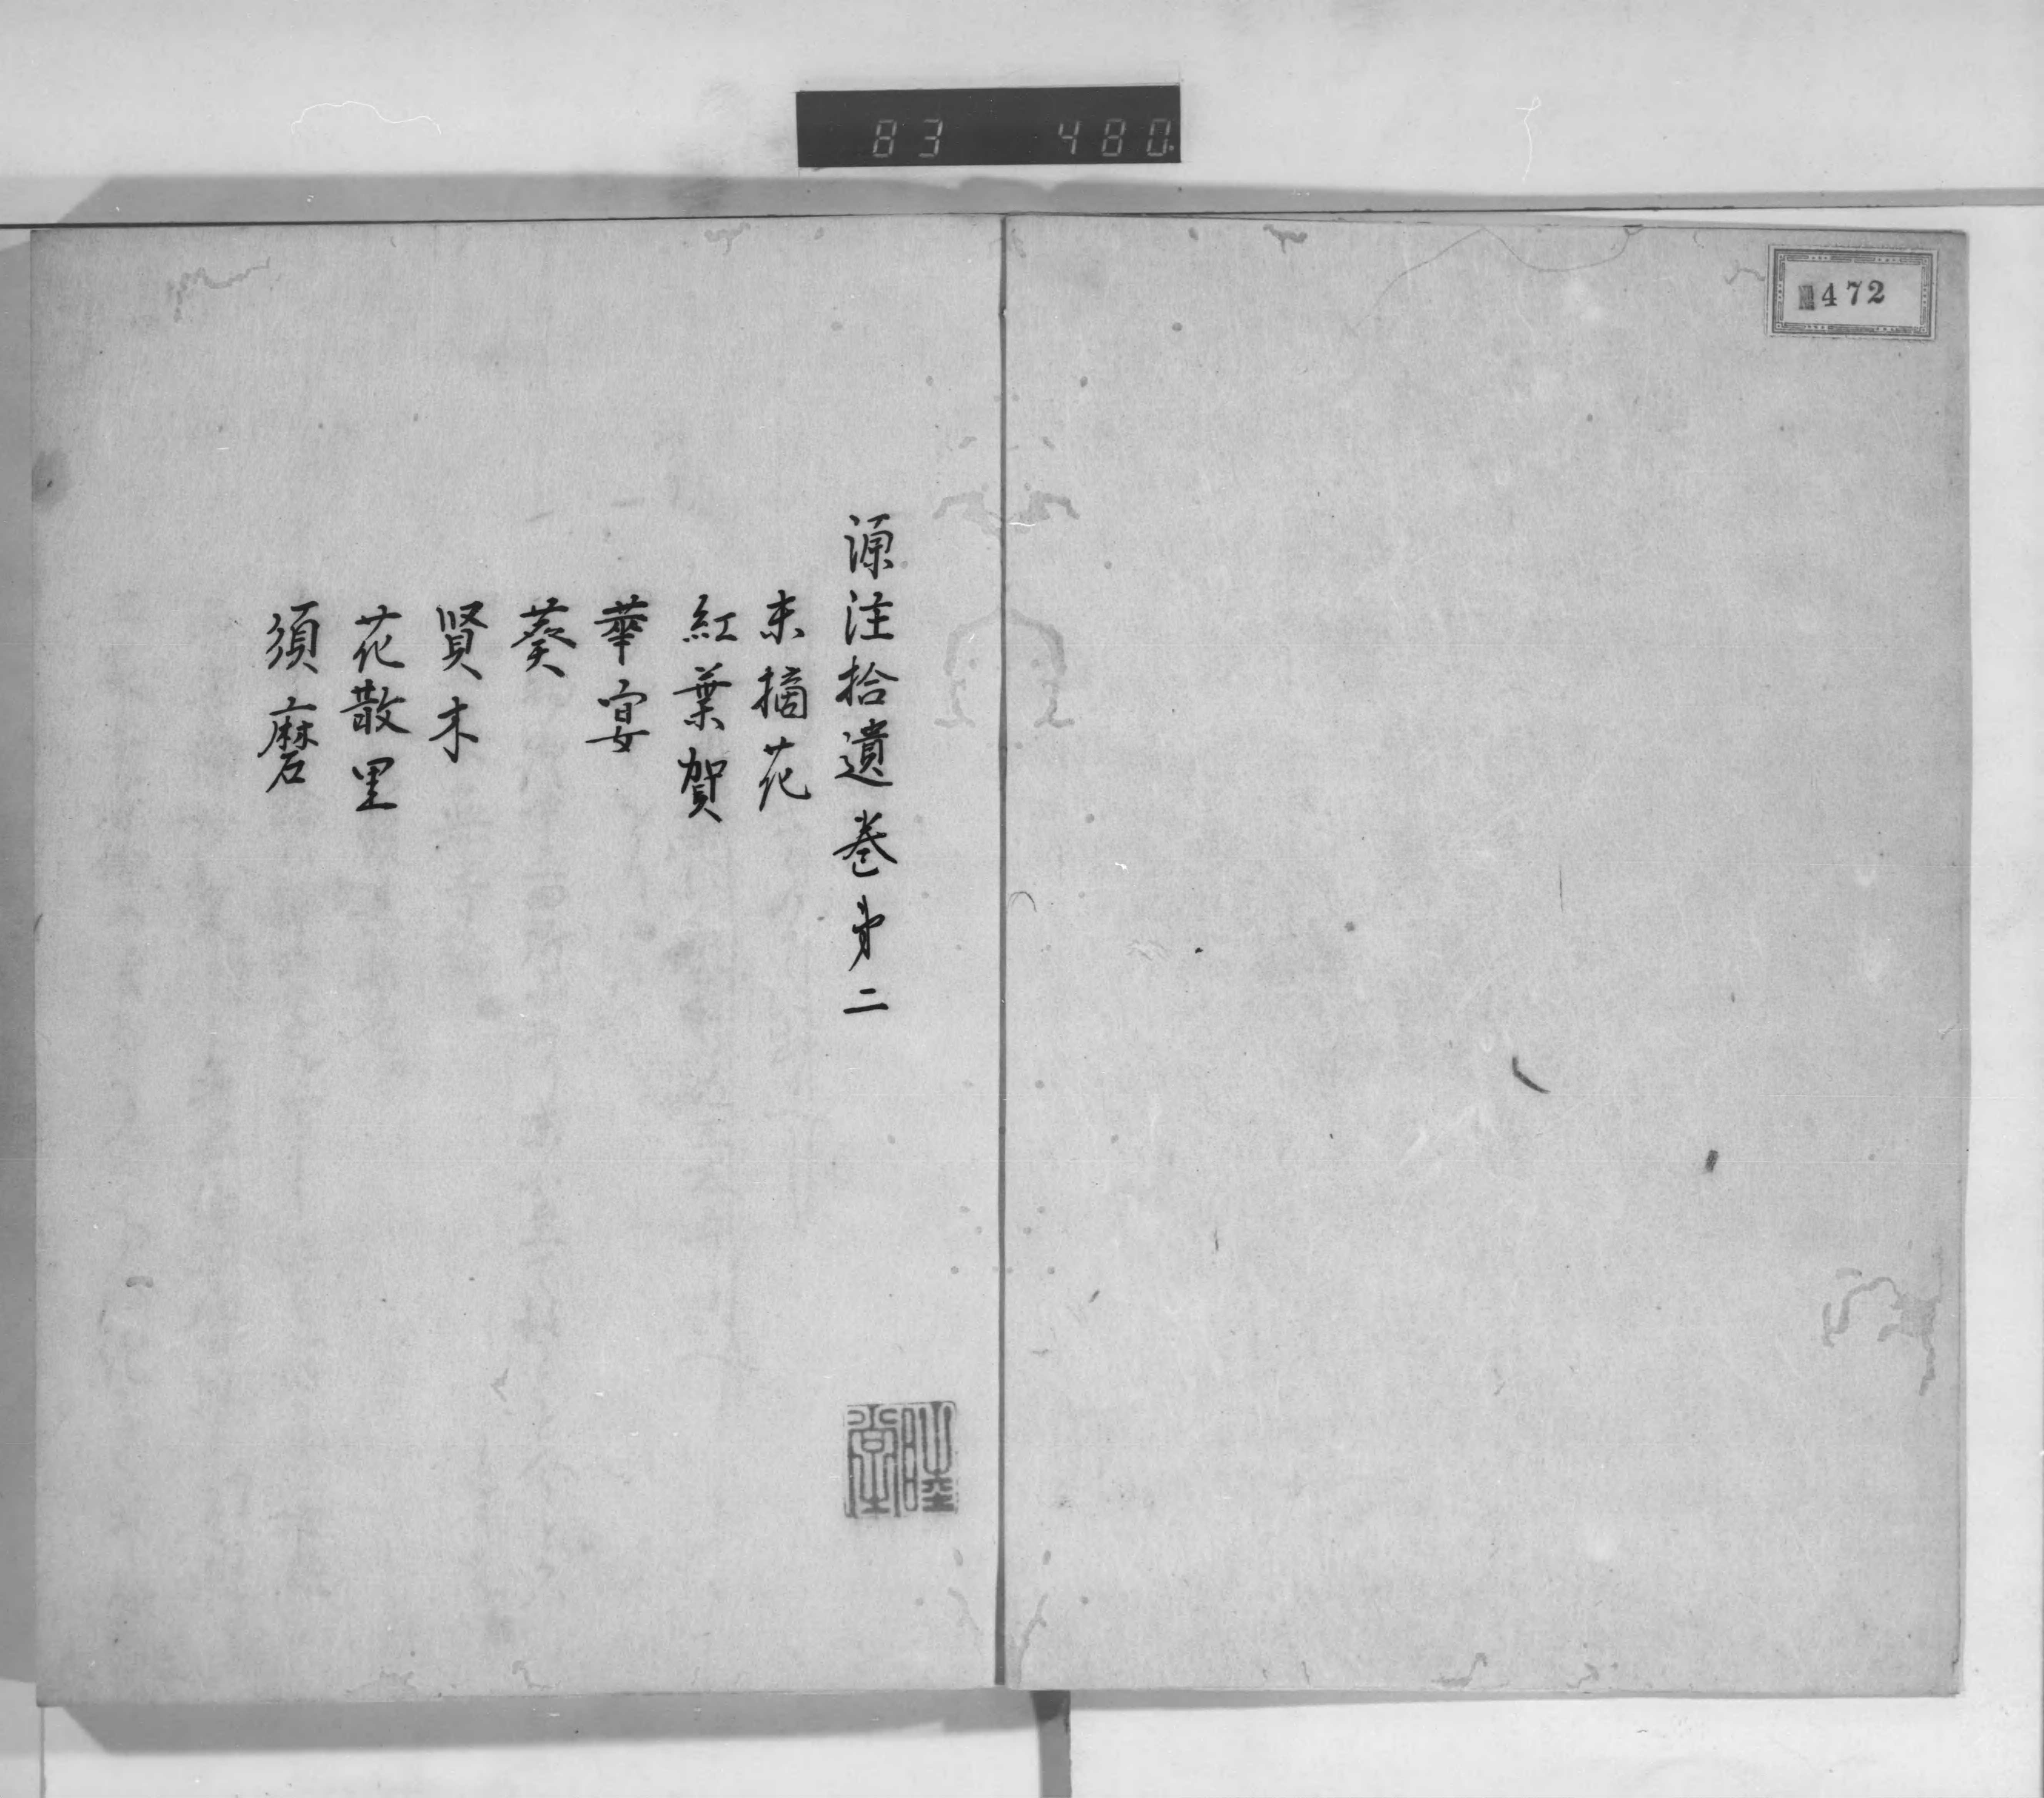 83 480
472
源注拾遺巻第二
末摘花
紅葉賀
華宴
葵
賢木
花散里
須磨
睦堂